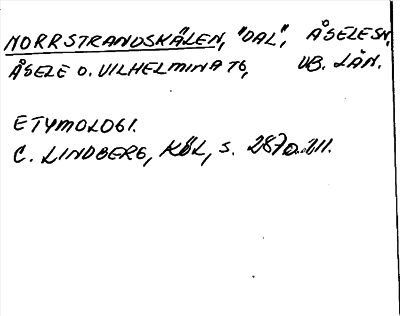 NORRSTRANDSKÄLEN, "DAL", ÅSELE SN,
ÅSELE O. VILHELMINA TG, VB. LÄN.
ETYMOLOGI.
C. LINDBERG, KÖL, S. 287